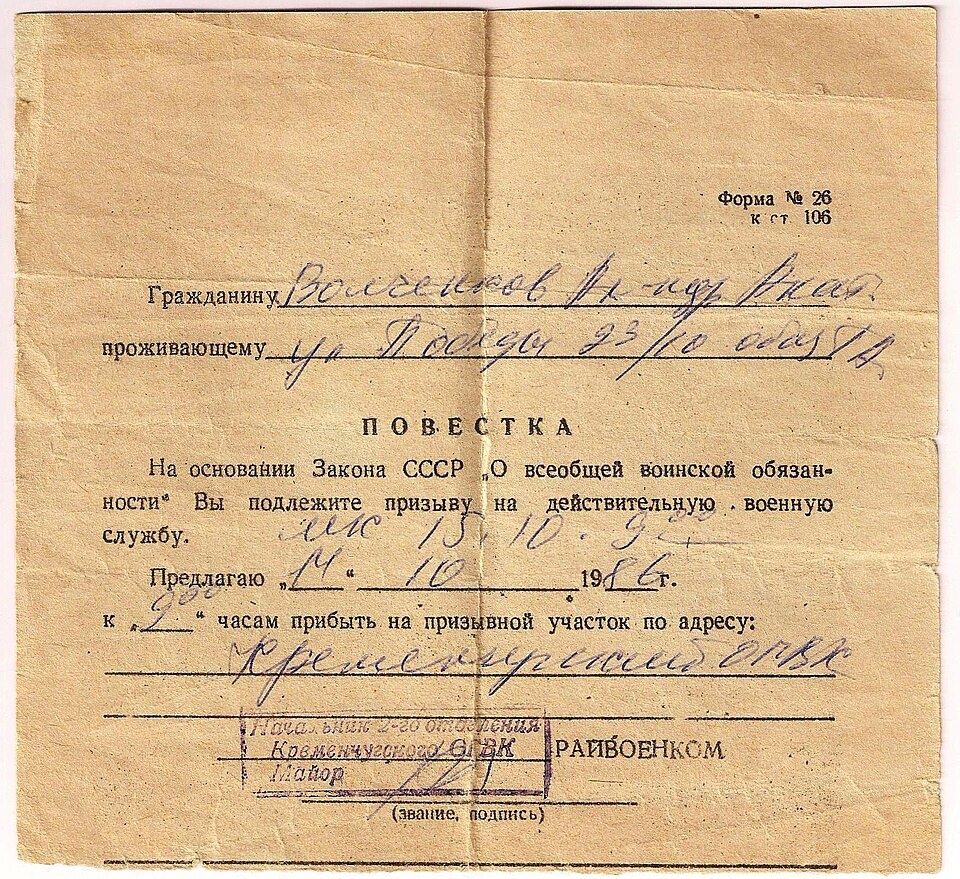 Форма № 26
к ст 106
Гражданину Волченков Ал-ндр Анат.
проживающему ул Победы 23/10
ПОВЕСТКА
На основании Закона СССР „О всеобщей воинской обязан-
ности“ Вы подлежите призыву на действительную военную
службу. 15.10. 9⁰⁰
Предлагаю „14“ 10 1986 г.
к „9⁰⁰“ часам прибыть на призывной участок по адресу:
Кременчугский ОГВК
Начальник 2-го отделения
Кременчугского ОГВК РАЙВОЕНКОМ
Майор
(звание, подпись)